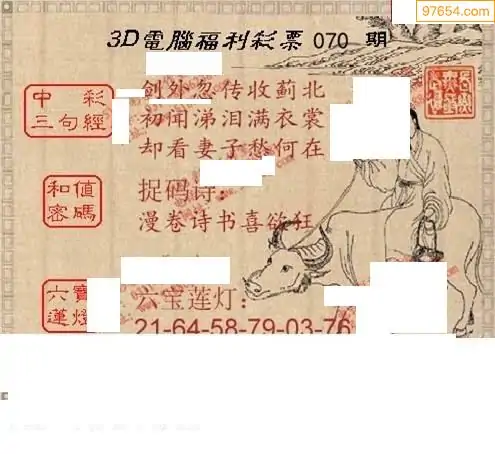 97654.com
3D電腦福利彩票 070 期
中彩
三句經
剑外忽传收蓟北
初闻涕泪满衣裳
却看妻子愁何在
和值
密碼
捉码诗:
漫卷诗书喜欲狂
六寶
蓮燈
六宝莲灯:
21-64-58-79-03-76